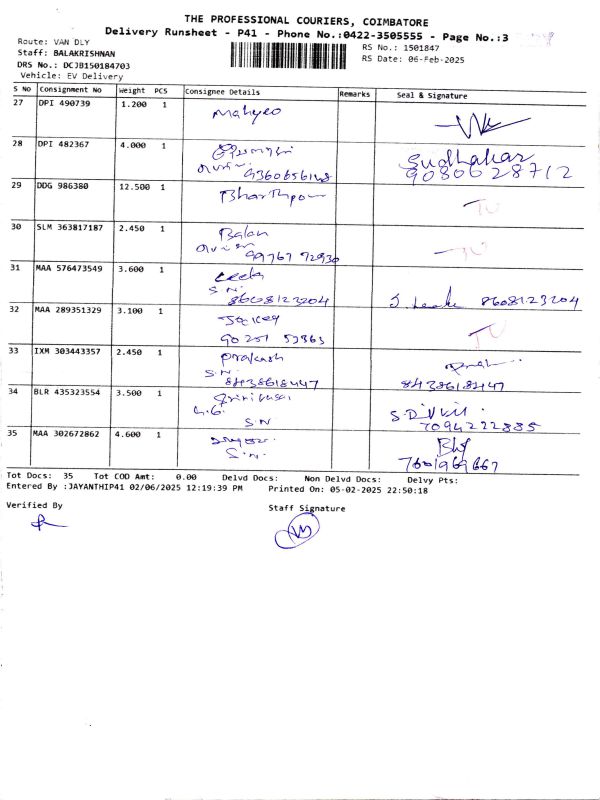 THE PROFESSIONAL COURIERS, COIMBATORE
Delivery Runsheet - P41 - Phone No.:0422-3505555 - Page No.:3
Route: VAN DLY
RS No.: 1501847
Staff: BALAKRISHNAN
RS Date: 06-Feb-2025
DRS No.: DCJB150184703
Vehicle: EV Delivery
S No Consignment No Weight PCS Consignee Details Remarks Seal & Signature
27 DPI 490739 1.200 1
28 DPI 482367 4.000 1 Sudhakar
9360656148 9080628712
29 DDG 986380 12.500 1 TU
30 SLM 363817187 2.450 1 Balan TU
99767 92930
31 MAA 576473549 3.600 1
S.N. 8608123204 8608123204
32 MAA 289351329 3.100 1 TU
33 IXM 303443357 2.450 1 Prakash
S.N. 8438618447 8438618447
34 BLR 435323554 3.500 1
S.N 7094222885
35 MAA 302672862 4.600 1
S.N. 7601969667
Tot Docs: 35 Tot COD Amt: 0.00 Delvd Docs: Non Delvd Docs: Delvy Pts:
Entered By :JAYANTHIP41 02/06/2025 12:19:39 PM Printed On: 05-02-2025 22:50:18
Verified By Staff Signature